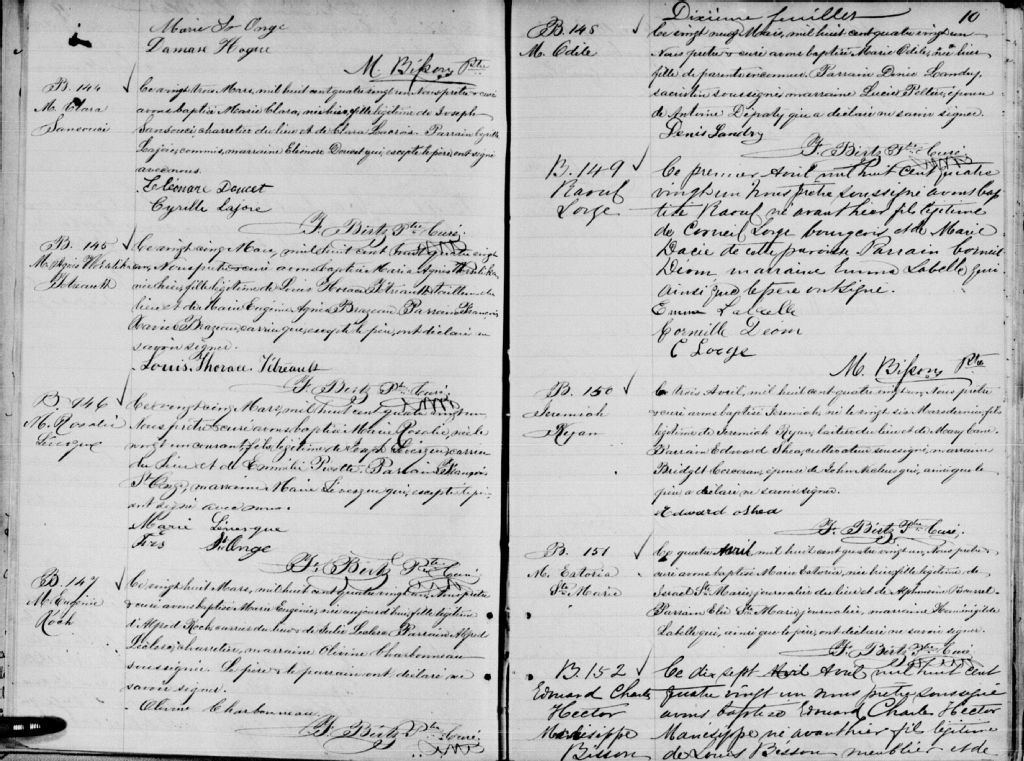 Marie St Onge
Damase Hogue
M. Bisson Ptre
B. 144
M. Clara
Sansouci
Ce vingt trois Mars, mil huit cent quatre vingt un Nous prêtre curé
avons baptisé Marie Clara, née hier, fille légitime de Joseph
Sansouci charretier du lieu et de Clara Lacroix. Parrain Cyrille
Lajoie, commis, marraine Eléonore Doucet qui, excepté le père, ont signé
avec nous.
Eléonare Doucet
Cyrille Lajoie
F. Birtz Ptre Curé.
B. 145
M. Agnès
Tétreault
Ce vingt cinq Mars, mil huit cent quatre vingt
un, Nous prêtre curé avons baptisé Marie Agnès
née hier, fille légitime de Louis Horace Tétreault tailleur du
lieu et de Marie Eugénie Agnès Brazeau. Parrain François
Xavier Brazeau, carrier qui, excepté le père, ont déclaré ne
savoir signer.
Louis Thorace Tétreault
F. Birtz Ptre Curé
B. 146
M. Rosalie
Levesque
Ce vingt cinq Mars, mil huit cent quatre vingt un,
Nous prêtre curé avons baptisé Marie Rosalie, née le
vingt un courant fille légitime de Joseph Levesque, carrier
du lieu et de Emmélie Parrain François
St Onge, marraine Marie Levesque qui, excepté le père
ont signé avec nous.
Marie Levesque
Frs St Onge
F. Birtz Ptre Curé
B. 147
M. Eugénie
Rock
Ce vingt huit Mars, mil huit cent quatre vingt un, Nous prêtre
curé avons baptisé Marie Eugénie, née aujourd'hui, fille légitime
d'Alfred Rock carrier du lieu & de Julie Leclerc. Parrain Alfred
Leclerc, charretier, marraine Olivine Charbonneau
soussignée. Le père & le parrain ont déclaré ne
savoir signer.
Olivine Charbonneau
F. Birtz Ptre Curé
Dixième feuillet
10
B. 148
M. Odile
Ce vingt neuf Mars, mil huit cent quatre vingt un
Nous prêtre curé avons baptisé Marie Odile, née hier
fille de parents inconnus. Parrain Denis Landry,
sacristain soussigné marraine Lucie Peltier, épouse
de Antoine Dépaty, qui a déclaré ne savoir signer.
Denis Landry
F. Birtz Ptre Curé
B. 149
Raoul
Lorge
Ce premier Avril mil huit cent quatre
vingt un nous prêtre soussigné avons bap
tisé Raoul né avant hier fils légitime
de Corneil Lorge bourgeois et de Marie
Dacie de cette paroisse Parrain Corneil
Deom marraine Emma Labelle qui
ainsi que le père ont signé.
Emma Labelle
Corneille Deom
C Lorge
M. Bisson Ptre
B. 150
Jeremiah
Ryan
Ce trois Avril, mil huit cent quatre vingt un, Nous prêtre
curé avons baptisé Jeremiah, né le vingt six Mars dernier, fils
légitime de Jeremiah Ryan, laitier du lieu et de Mary Lane.
Parrain Edward Shea, cultivateur soussigné, marraine
Bridgett Corcoran, épouse de John qui, ainsi que le
père a déclaré ne savoir signer.
Edward oShea
F. Birtz Ptre Curé
B. 151
M. Extoria
Ste Marie
Ce quatre Avril mil huit cent quatre vingt un, Nous prêtre
curé avons baptisé Marie Extoria, née hier, fille légitime de
Israel Ste Marie, journalier du lieu et de Alphonsine
Parrain Elie Ste Marie, journalier, marraine Herminigilde
Labelle qui, ainsi que le père, ont déclaré ne savoir signer.
F. Birtz Ptre Curé
B. 152
Edouard Charles
Hector
Manesippe
Bisson
Ce dix sept Avril Avril mil huit cent
quatre vingt un nous prêtre soussigné
avons baptisé Edouard Charles Hector
Manesippe né avant hier fils légitime
de Louis Bisson meublier et de